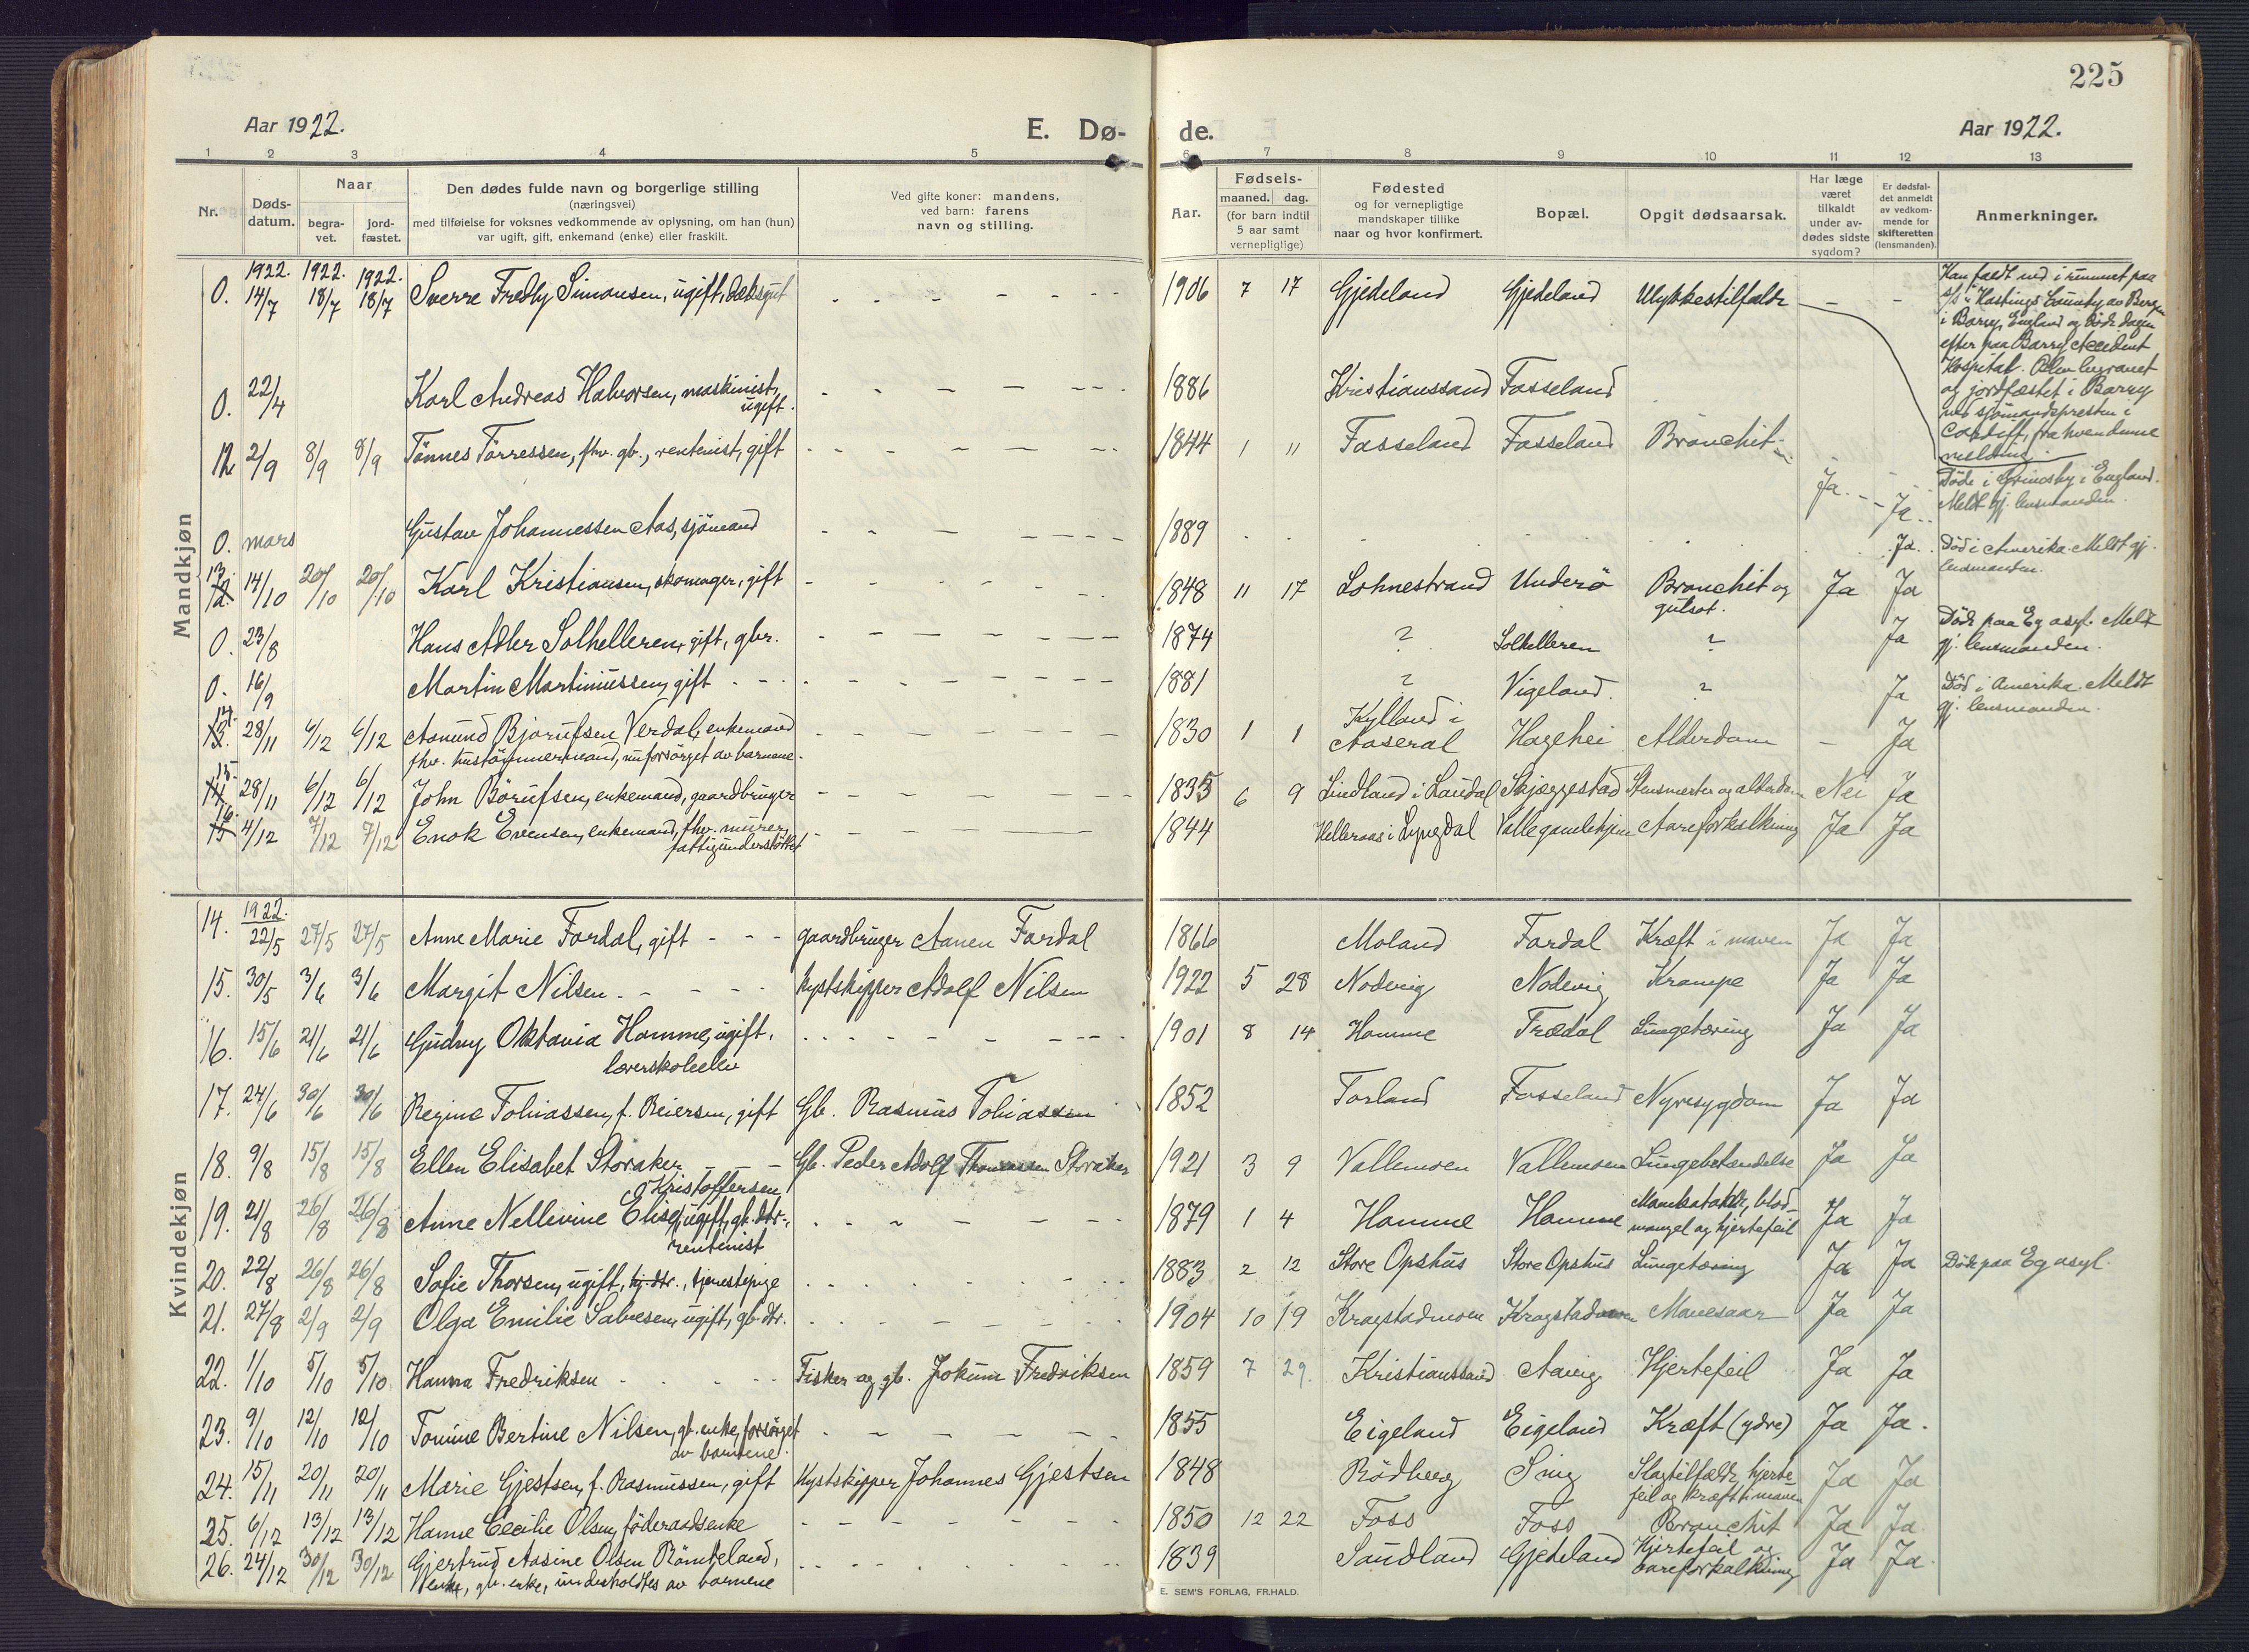 225
Aar 1922. E. Dø- de. Aar 1922.
1 2 3 4 5 6 7 8 9 10 11 12 13
Nr.
Døds-
datum.
Naar
begra-
vet.
jord-
fæstet.
Den dødes fulde navn og borgerlige stilling
(næringsvei)
med tilføielse for voksnes vedkommende av oplysning, om han (hun)
var ugift, gift, enkemand (enke) eller fraskilt.
Ved gifte koner: mandens,
ved barn: farens
navn og stilling.
Aar.
Fødsels-
maaned. dag.
(for barn indtil
5 aar samt
vernepligtige)
Fødested
og for vernepligtige
mandskaper tillike
naar og hvor konfirmert.
Bopæl.
Opgit dødsaarsak.
Har læge
været
tilkaldt
under av-
dødes sidste
sygdom?
Er dødsfal-
det anmeldt
av vedkom-
mende for
skifteretten
(lensmanden).
Anmerkninger.
Mandkjøn
1922. 1922. 1922.
0. 14/7 18/7 18/7 Sverre Fredly Simonsen, ugift, dæksgut - - - 1906 7 17 Gjedeland Gjedeland Ulykkestilfælde - -
Han faldt ned i rummet paa
s/s "Hastings County" av Bergen
i Barry, England og døde dagen
efter paa Barry Accident
Hospital. Blev begravet
og jordfæstet i Barry
ved sjømandspresten i
Cardiff, fra hvem denne
melding.
0. 22/4 Karl Andreas Halvorsen, maskinist,
ugift. - - - 1886 Kristianssand Fasseland
Døde i Grimsby i England.
Meldt gj. lensmanden.
12 2/9 8/9 8/9 Tønnes Tørressen, fhv. gb., rentenist, gift - - - 1844 1 " Fasseland Fasseland Bronchit Ja Ja
0. mars Gustav Johannessen Aas, sjømand - - - 1889 Ja. Død i Amerika. Meldt gj.
lensmanden.
13. 12. 14/10 20/10 20/10 Karl Kristiansen, skomager, gift - - - 1848 11 17 Lohnestrand Underø Bronchit og
gulsot. Ja Ja
0. 23/8 Hans Adler Solhelleren, gift, gbr. - - - 1874 ? Solhelleren ? Ja Døde paa Eg asyl. Meldt
gj. lensmanden.
0. 16/9 Martin Martiniussen, gift - - - 1881 ? Vigeland. ? Ja Død i Amerika. Meldt
gj. lensmanden.
14. 13. 28/11 6/12 6/12 Aanund Bjorulfsen Verdal, enkemand
fhv. hustømmermand, nu forsørget av barnene. - - - 1830 1 1 Kylland i
Aaseral Hagehei Alderdom - Ja
15 14 28/11 6/12 6/12 John Børufsen, enkemand, gaardbruger - - - 1835 6 9 Lindland i Laudal Skjæggestad Stensmerter og alderdom Nei Ja
16. 15 4/12 7/12 7/12 Enok Evensen, enkemand, fhv. murer,
fattigunderstøttet - - - 1844 Helleraas i Lyngdal Vallegamlehjem Aareforkalkning Ja Ja
Kvindekjøn
1922.
14. 22/5 27/5 27/5 Anne Marie Fardal, gift - - - gaardbruger Aanen Fardal 1866 Moland Fardal Kræft i maven Ja Ja
15. 30/5 3/6 3/6 Margit Nilsen - - - Kystskipper Adolf Nilsen 1922 5 28 Nodevig Nodevig Krampe Ja Ja
16. 15/6 21/6 21/6 Gudny Oktavia Homme, ugift,
lærerskoleelev - - - 1901 8 14 Homme Trædal Lungetæring Ja Ja
17. 24/6 30/6 30/6 Regine Tobiassen, f. Reiersen, gift Gb. Rasmus Tobiassen 1852 Torland Fasseland Nyresygdom Ja Ja
18. 9/8 15/8 15/8 Ellen Elisabet Storaker - - - Gb. Peder Adolf Thomassen Storaker 1921 3 9 Vallemoen Vallemoen Lungebetændelse Ja Ja
Kristoffersen,
19. 21/8 26/8 26/8 Anne Nellevine Elise, ugift, gb. dtr.,
rentenist - - - 1879 1 4 Homme Homme Mavekatarh, blod-
mangel og hjertefeil Ja Ja
20. 22/8 26/8 26/8 Sofie Thorsen, ugift, hj. dtr., tjenestepige - - - 1883 2 12 Store Opshus Store Opshus Lungetæring Ja Ja Døde paa Eg asyl.
21. 27/8 2/9 2/9 Olga Emilie Salvesen, ugift, gb. dtr. - - - 1904 10 19 Kragstadmoen Kragstadmoen Mavesaar Ja Ja
22. 1/10 5/10 5/10 Hanna Fredriksen - - - Fisker og gb. Jokum Fredriksen 1859 7 29. Kristianssand Aavig Hjertefeil Ja Ja
23. 9/10 12/10 12/10 Tomine Bertine Nilsen, gb. enke, forsørget
av barnene. - - - 1855 Eigeland Eigeland Kræft (ydre) Ja Ja.
24. 15/11 20/11 20/11 Marie Gjestsen, f. Rasmussen, gift Kystskipper Johannes Gjestsen 1848 Rødberg Snig Slagtilfælde, hjerte
feil og kræft i maven Ja Ja
25. 6/12 13/12 13/12 Hanne Cecilie Olsen, føderaadsenke - - - 1850 12 22 Foss Foss Bronchit Ja Ja
26. 24/12 30/12 30/12 Gjertrud Aasine Olsen Rømteland,
enke, gb. enke, underholdtes av barnene - - - 1839 Saudland Gjedeland Hjertefeil og
aareforkalkning Ja Ja.
E. SEM'S FORLAG, FR.HALD.